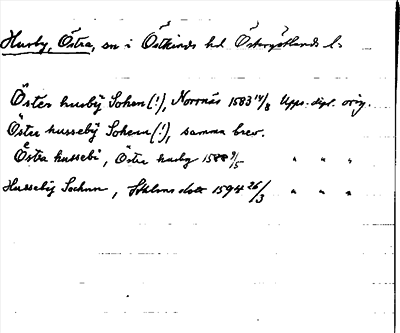 Husby, Östra, sn i Östkinds hd Östergötlands l.
Öster husbÿ Sohen (!), Norrnäs 1583 14/8 Upps. dipl. orig.
Öster hussebÿ Sohenn (!), samma brev.
Östra hussebi, Östra husby 1588 9/5 " " "
Hussebÿ Sochnn, 1594 26/3 " " "